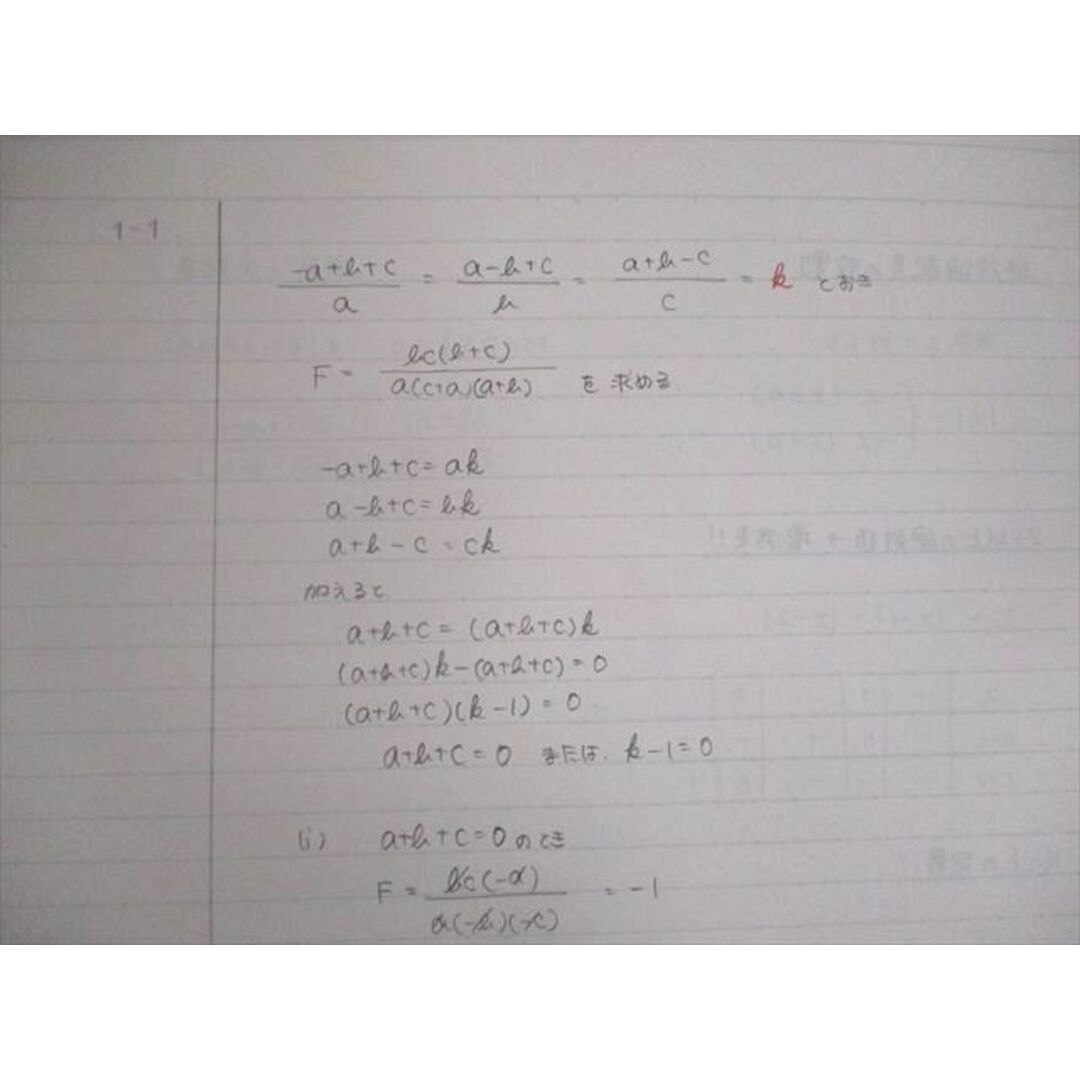 1-1
(-a+b+c)/a = (a-b+c)/b = (a+b-c)/c = k とおき
F = bc(b+c)/a(c+a)(a+b) を求める
-a+b+c = ak
a-b+c = bk
a+b-c = ck
加えると
a+b+c = (a+b+c)k
(a+b+c)k-(a+b+c) = 0
(a+b+c)(k-1) = 0
a+b+c = 0 または. k-1 = 0
(i) a+b+c = 0 のとき
F = bc(-a)/a(-b)(-c) = -1